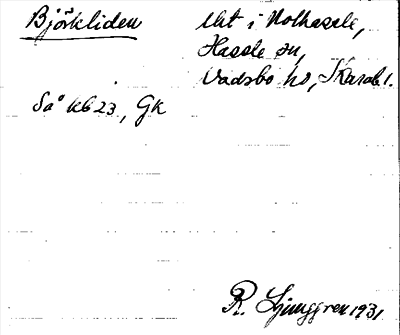 Björkliden
lht i Nolhassle,
Hassle sn,
Vadsbo hd, Skarab l.
Så Kb 23, GK
R. Ljunggren 1931